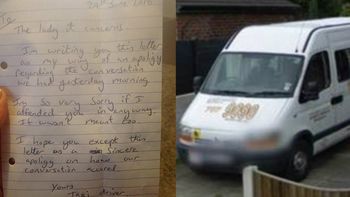 To
The lady it concerns
I'm writing you this letter
as my way of an apoligy
regarding the conversation
we had yesterday morning.
I'm So very Sorry if I
offended you in any way.
It wasn't meant too.
I hope you except this
letter as a Sincere
apoligy an have our
conversation scored.
Yours
Taxi driver